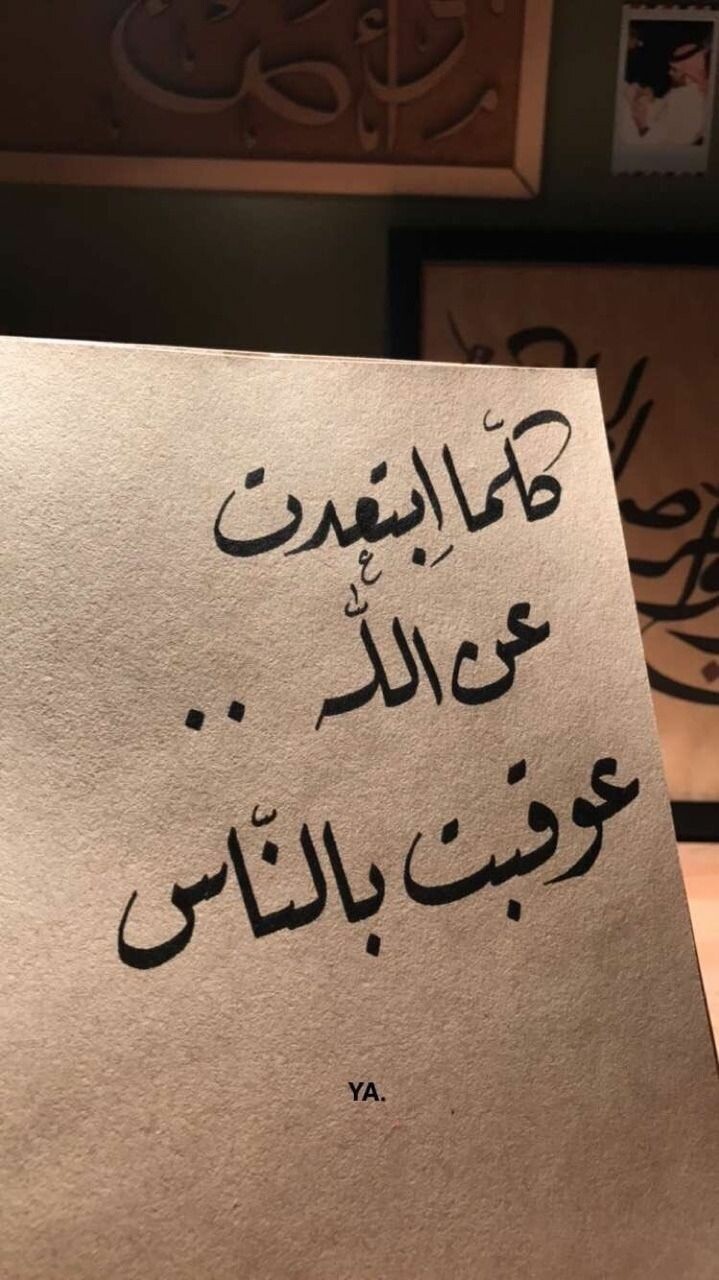 كلّما اِبتعدت
عن اللّٰه ..
عوقبت بالنّاس
YA.